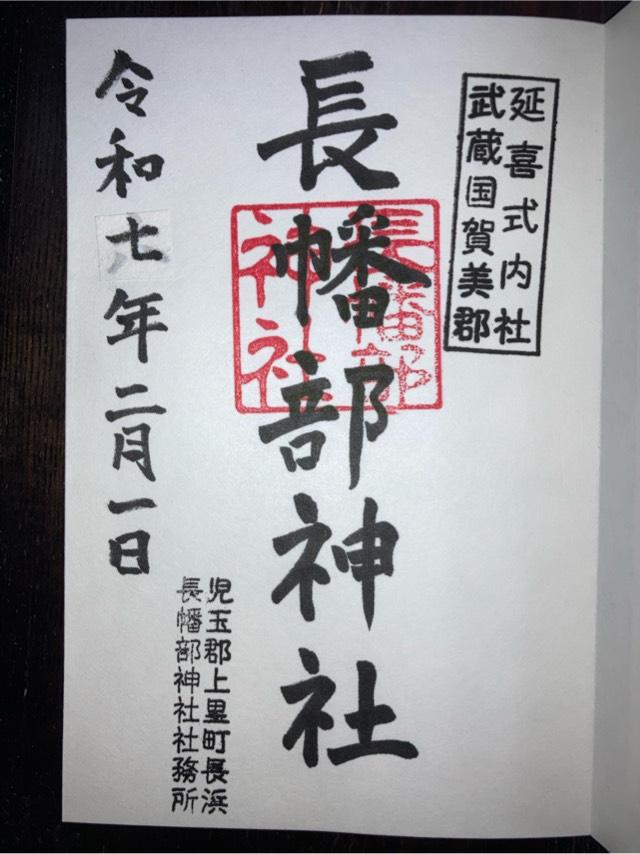 延喜式内社
武蔵国賀美郡
長幡部神社
長幡部
神社
児玉郡上里町長浜
長幡部神社社務所
令和七年二月一日